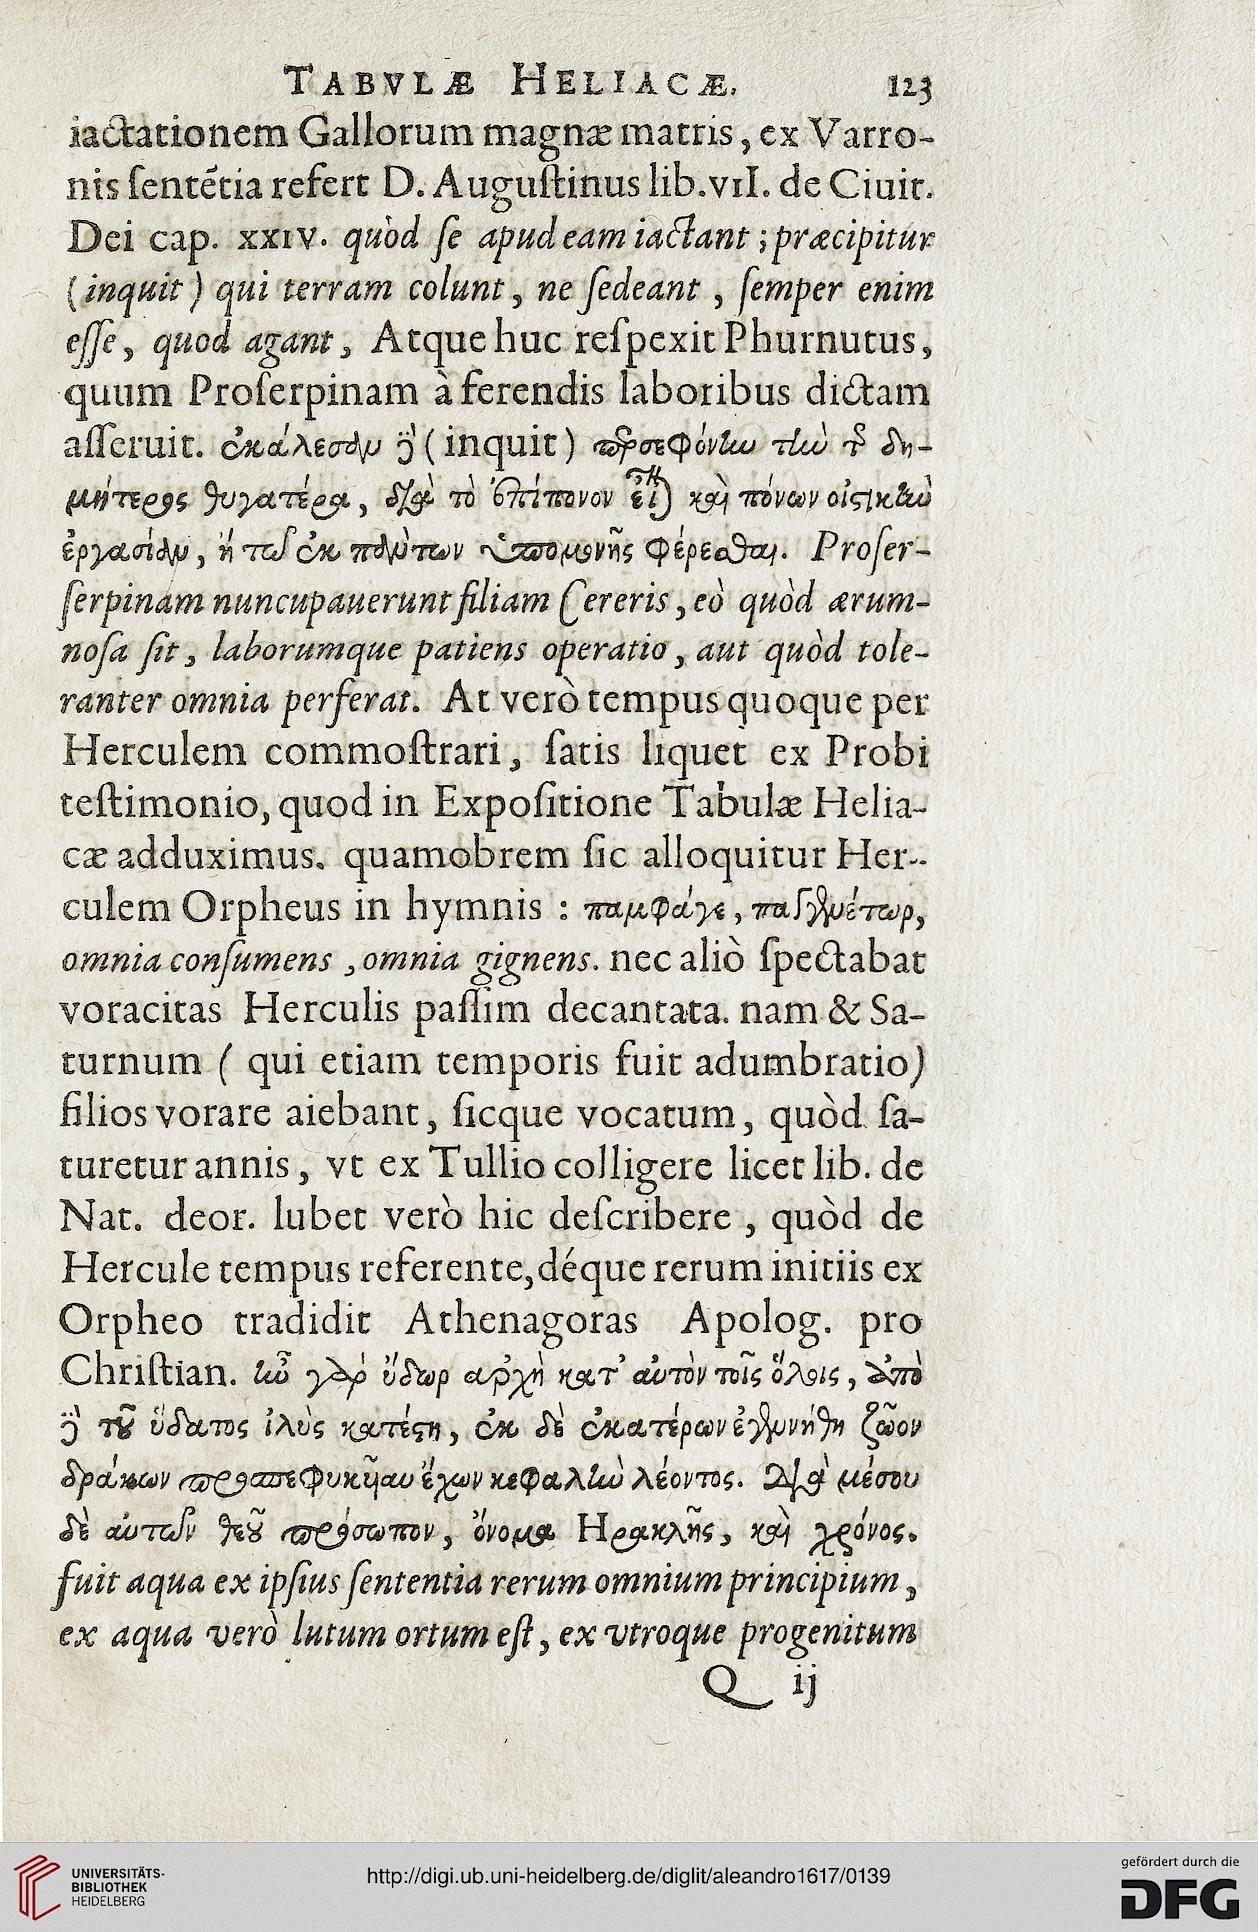 TABVLÆ HELIACÆ. 123
iactationem Gallorum magnæ matris, ex Varro-
nis ſentẽtia refert D. Auguſtinus lib.vII. de Ciuit.
Dei cap. xxIV. quòd ſe apud eam iactant ; præcipitur
(inquit) qui terram colunt, ne ſedeant, ſemper enim
eſſe, quod agant, Atque huc reſpexit Phurnutus,
quum Proſerpinam à ferendis laboribus dictam
aſſeruit. ἐκάλεσαν δὲ (inquit) προσεφόνην τὴν τῆς δη-
μήτερος θυγατέρα, διὰ τὸ ἐπίπονον εἶναι καὶ πόνων οἰστικὴν
ἐργασίαν, ἢ τῷ ἐκ πάντων ὑπομονῆς φέρεσθαι. Proſer-
ſerpinam nuncupauerunt filiam Cereris, eò quòd ærum-
noſa ſit, laborumque patiens operatio, aut quòd tole-
ranter omnia perferat. At verò tempus quoque per
Herculem commoſtrari, ſatis liquet ex Probi
teſtimonio, quod in Expoſitione Tabulæ Helia-
cæ adduximus. quamobrem ſic alloquitur Her-
culem Orpheus in hymnis : παμφάγε, παγγενέτωρ,
omnia conſumens, omnia gignens. nec aliò ſpectabat
voracitas Herculis paſſim decantata. nam & Sa-
turnum ( qui etiam temporis fuit adumbratio)
filios vorare aiebant, ſicque vocatum, quòd ſa-
turetur annis, vt ex Tullio colligere licet lib. de
Nat. deor. lubet verò hic deſcribere, quòd de
Hercule tempus referente, déque rerum initiis ex
Orpheo tradidit Athenagoras Apolog. pro
Chriſtian. ἦν γὰρ ὕδωρ ἀρχὴ κατ' αὐτὸν τοῖς ὅλοις, ἀπὸ
δὲ τοῦ ὕδατος ἰλὺς κατέστη, ἐκ δὲ ἑκατέρων ἐγεννήθη ζῶον
δράκων προσπεφυκῖαν ἔχων κεφαλὴν λέοντος. Διὰ μέσου
δὲ αὐτῶν θεοῦ πρόσωπον, ὄνομα Ηρακλῆς, καὶ χρόνος.
fuit aqua ex ipſius ſententia rerum omnium principium,
ex aqua verò lutum ortum eſt, ex vtroque progenitum
Q ij
UNIVERSITÄTS-
BIBLIOTHEK
HEIDELBERG
http://digi.ub.uni-heidelberg.de/diglit/aleandro1617/0139
gefördert durch die
DFG